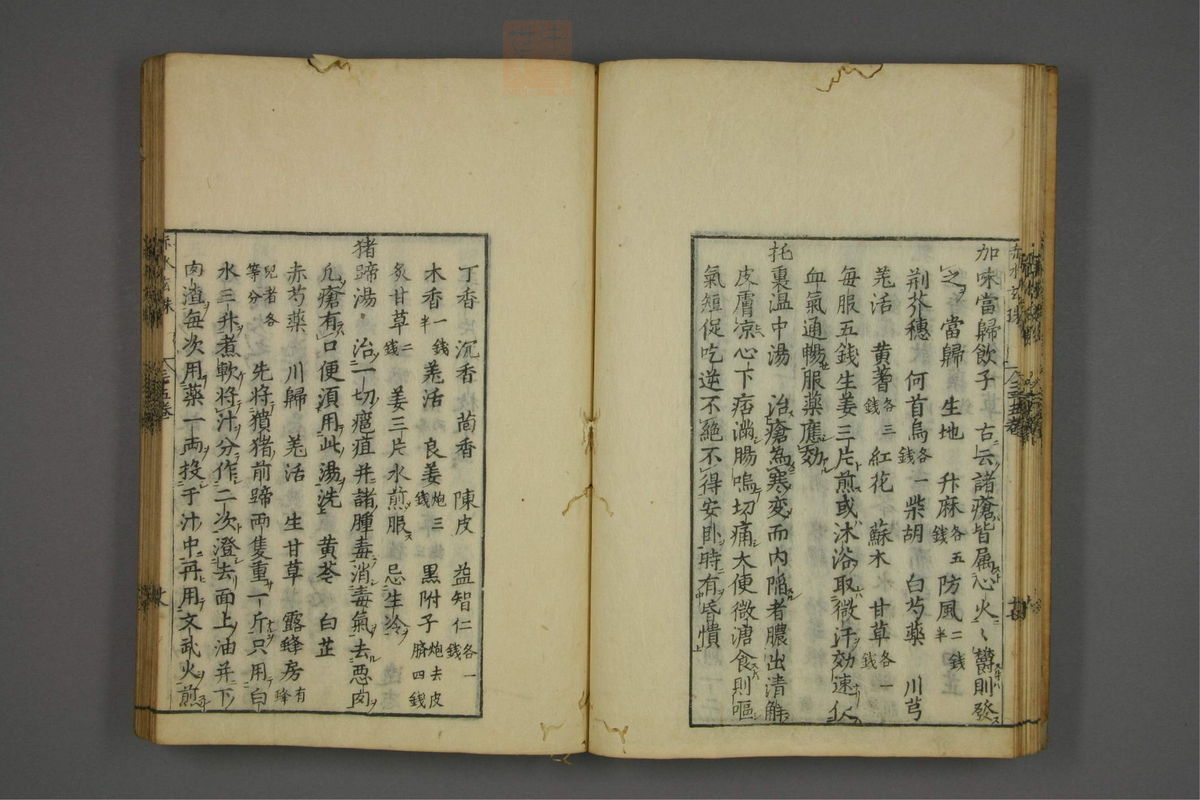 加味當歸飲子 古云諸瘡皆属心火〻欝則發
之 當歸 生地 升麻各五錢 防風二錢半
荆芥穗 何首烏各一錢 柴胡 白芍藥 川芎
羌活 黄蓍各三錢 紅花 蘇木 甘草各一錢
每服五錢生姜三片煎或沐浴取微汗効速
血氣通暢服藥應効
托裏温中湯 治瘡為寒変而内陥者膿出清觧
皮膚凉心下痞滿腸鳴切痛大便微溏食則嘔
氣短促吃逆不絕不得安卧時有昏憒
丁香 沉香 茴香 陳皮 益智仁各一錢
木香一錢半 羌活 良姜炮三錢 黒附子炮去皮臍四錢
炙甘草二錢 姜三片水煎服 忌生冷
猪蹄湯 治一切癰疽并諸腫毒消毒氣去悪肉
凢瘡有口便湏用此湯洗 黄芩 白芷
赤芍藥 川歸 羌活 生甘草 露蜂房有蜂
兒者各等分 先将猪前蹄両隻重一斤只用白
水三升煮軟将汁分作二次澄去面上油并下
肉渣每次用藥一両投于汁中再用文武火煎